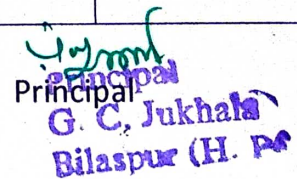 Principal
Principal
G. C, Jukhala
Bilaspur (H. P